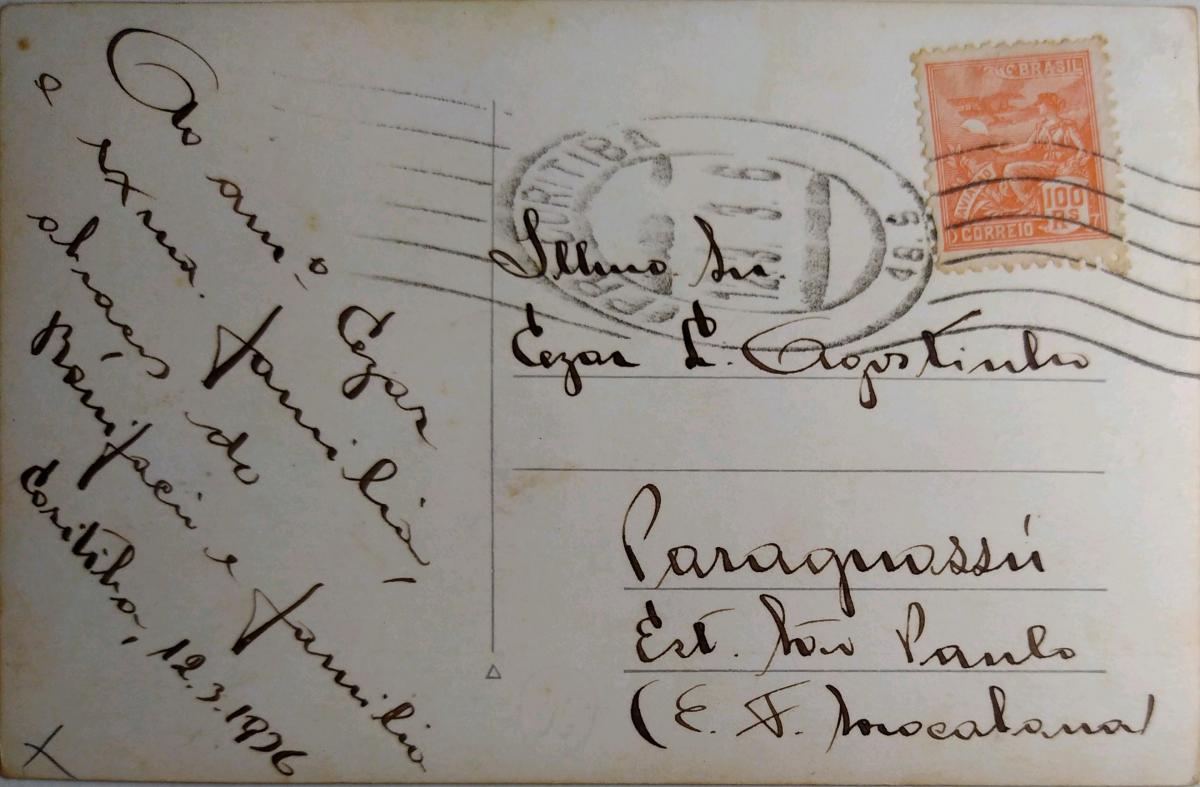 Ao am.º Cezar
e exma. familia,
abraços do
Bonifacio e familia
Coritiba, 12.3.1936
CORITIBA
12.3
3.6
18.5
BRASIL
AVIAÇÃO
100
Rs
CORREIO
Illmo. Snr.
Cezar L. Agostinho
Paraguassú
Est. São Paulo
(E. F. Sorocabana)